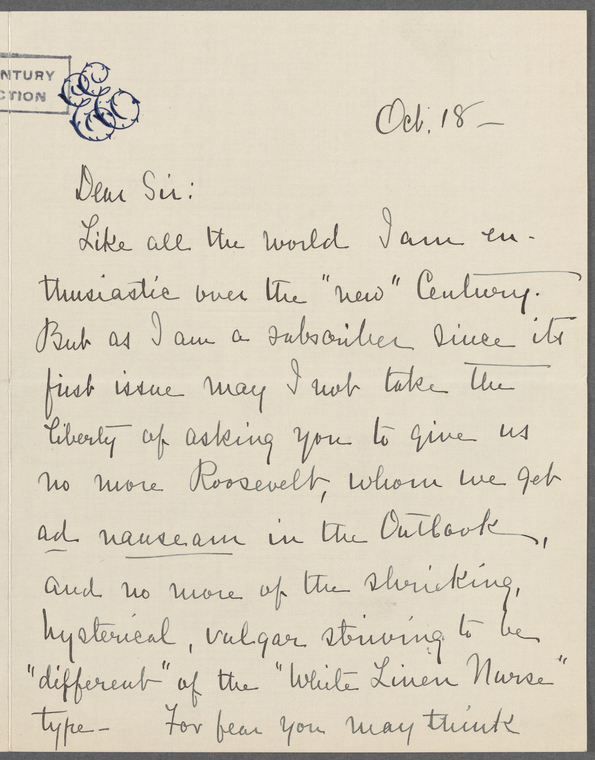 NTURY
CTION
Oct. 18 —
Dear Sir:
Like all the world I am en-
thusiastic over the "new" Century.
But as I am a subscriber since its
first issue may I not take the
liberty of asking you to give us
no more Roosevelt, whom we get
ad nauseam in the Outlook,
and no more of the shrieking,
hysterical, vulgar striving to be
"different" of the "White Linen Nurse"
type — For fear you may think